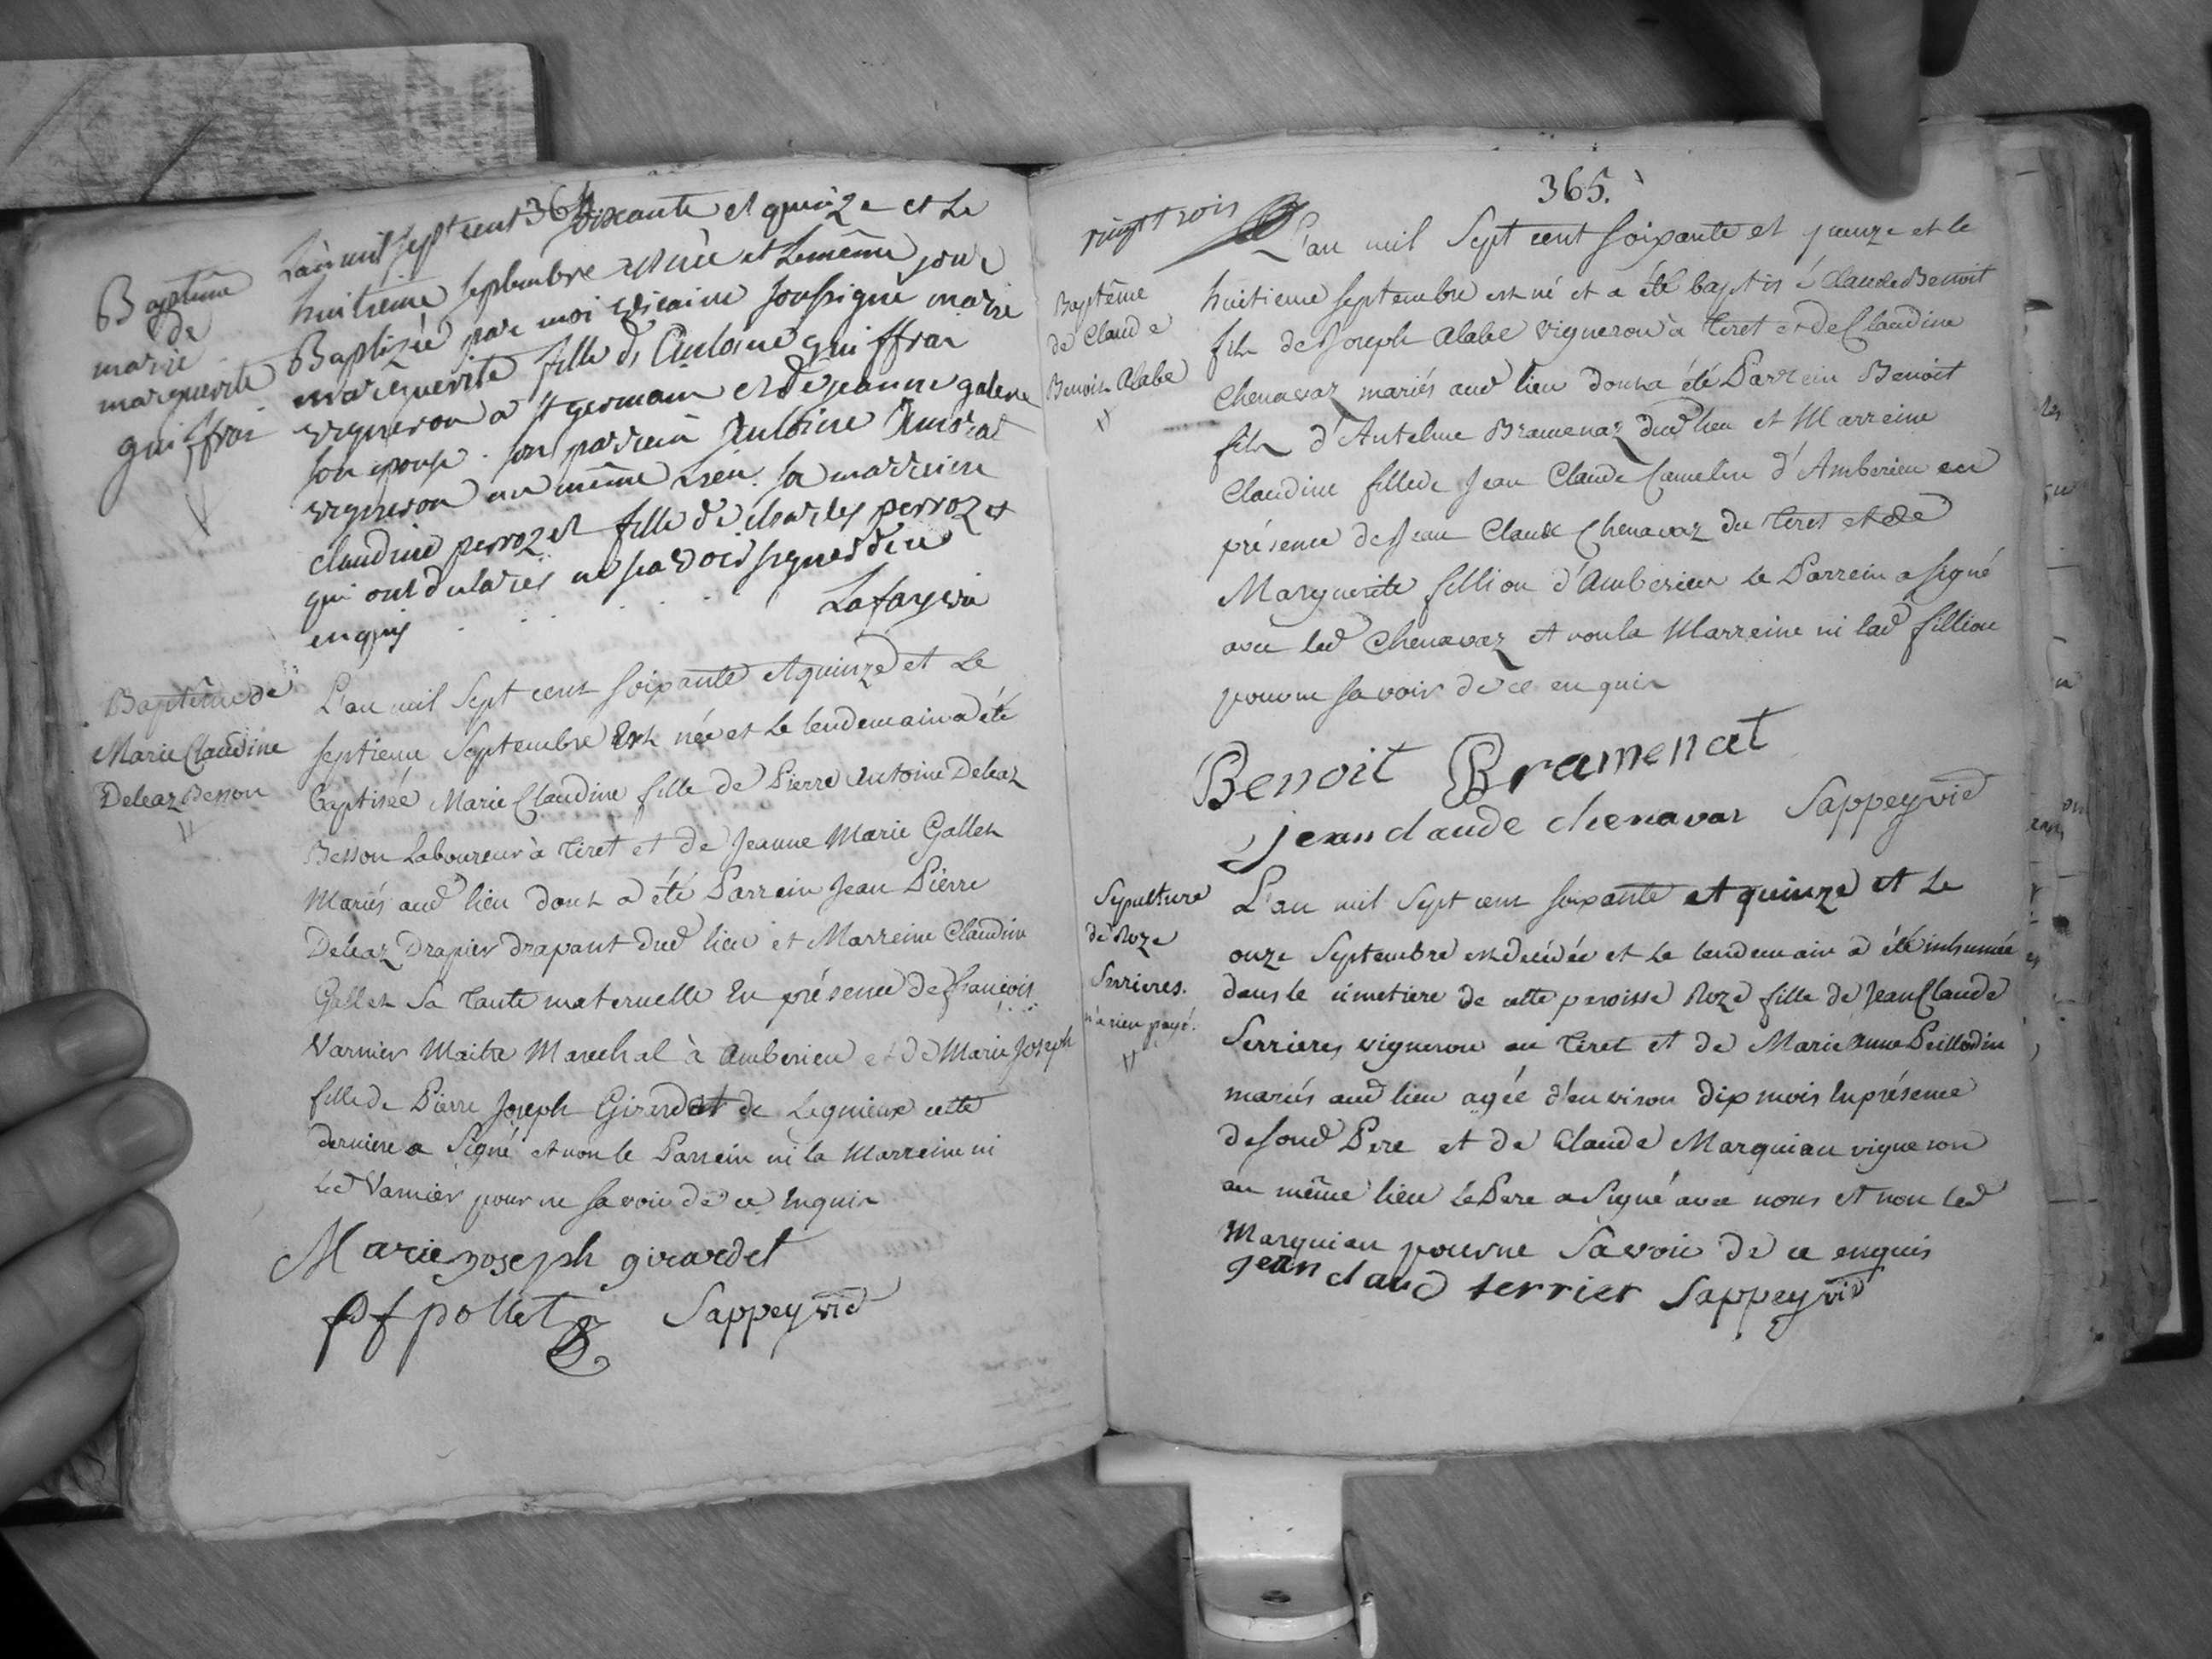 364
Baptême
de
marie
marguerite
guiffrai
L'an mil sept cent soixante et quinze et le
huitieme septembre est née et le même jour
Baptizée par moi vicaire soussigné marie
marguerite fille d'Antoine guiffrai
vigneron a st germain et de jeanne galene
son epouse . son parrein Antoine
vigneron au même lieu . sa marreine
claudine perrozet fille de charles perrozet
qui ont déclarés ne scavoir signer de ce
enquis
Lafay vic
Baptême de
Marie Claudine
Deleaz Besson
L'an mil sept cent soixante et quinze et le
septieme Septembre Est née et le lendemain a été
baptisée Marie Claudine fille de Pierre Antoine Deleaz
Besson Laboureur à Tiret et de Jeanne Marie Gallet
Mariés aud lieu dont a été Parrein Jean Pierre
Deleaz Drapier drapant dud lieu et Marreine Claudine
Gallet Sa Tante maternelle En présence de françois
Varnier Maitre Marechal à Amberieu et de Marie Joseph
fille de Pierre Joseph Girardet de Lagnieux cette
derniere a Signé et non le Parrein ni la Marreine ni
Led Varnier pour ne savoir de ce Enquis
Marie joseph girardet
pollet Sappey vic
365.
vingt trois
Baptême
de Claude
Benoit Alabe
L'an mil Sept cent soixante et quinze et le
huitieme septembre est né et a été baptisé Claude Benoit
fils de Joseph Alabe vigneron à Tiret et de Claudine
Chenavaz mariés aud lieu dont a été Parrein Benoit
fils d'Antelme Bramenaz dud lieu et Marreine
Claudine fille de Jean Claude Camelin d'Amberieu en
présence de Jean Claude Chenavaz du Tiret et de
Marguerite fillion d'Amberieu le Parrein a signé
avec led Chenavaz et non la Marreine ni lad fillion
pour ne savoir de ce enquis
Benoit Bramenat
jean claude chenavar Sappey vic
Sepulture
de Roze
Serrieres.
n'a rien payé.
L'an mil Sept cent soixante et quinze et le
onze Septembre est decedée et le lendemain a été inhumée
dans le cimetiere de cette paroisse Roze fille de Jean Claude
Serrieres vigneron au Tiret et de Marie Anne Peillodin
mariés aud lieu agée d'environ dix mois En présence
de sond Pere et de Claude Marquian vigneron
au même lieu le Pere a signé avec nous et non led
Marquian pour ne Savoir de ce enquis
jean claud serrier Sappey vic